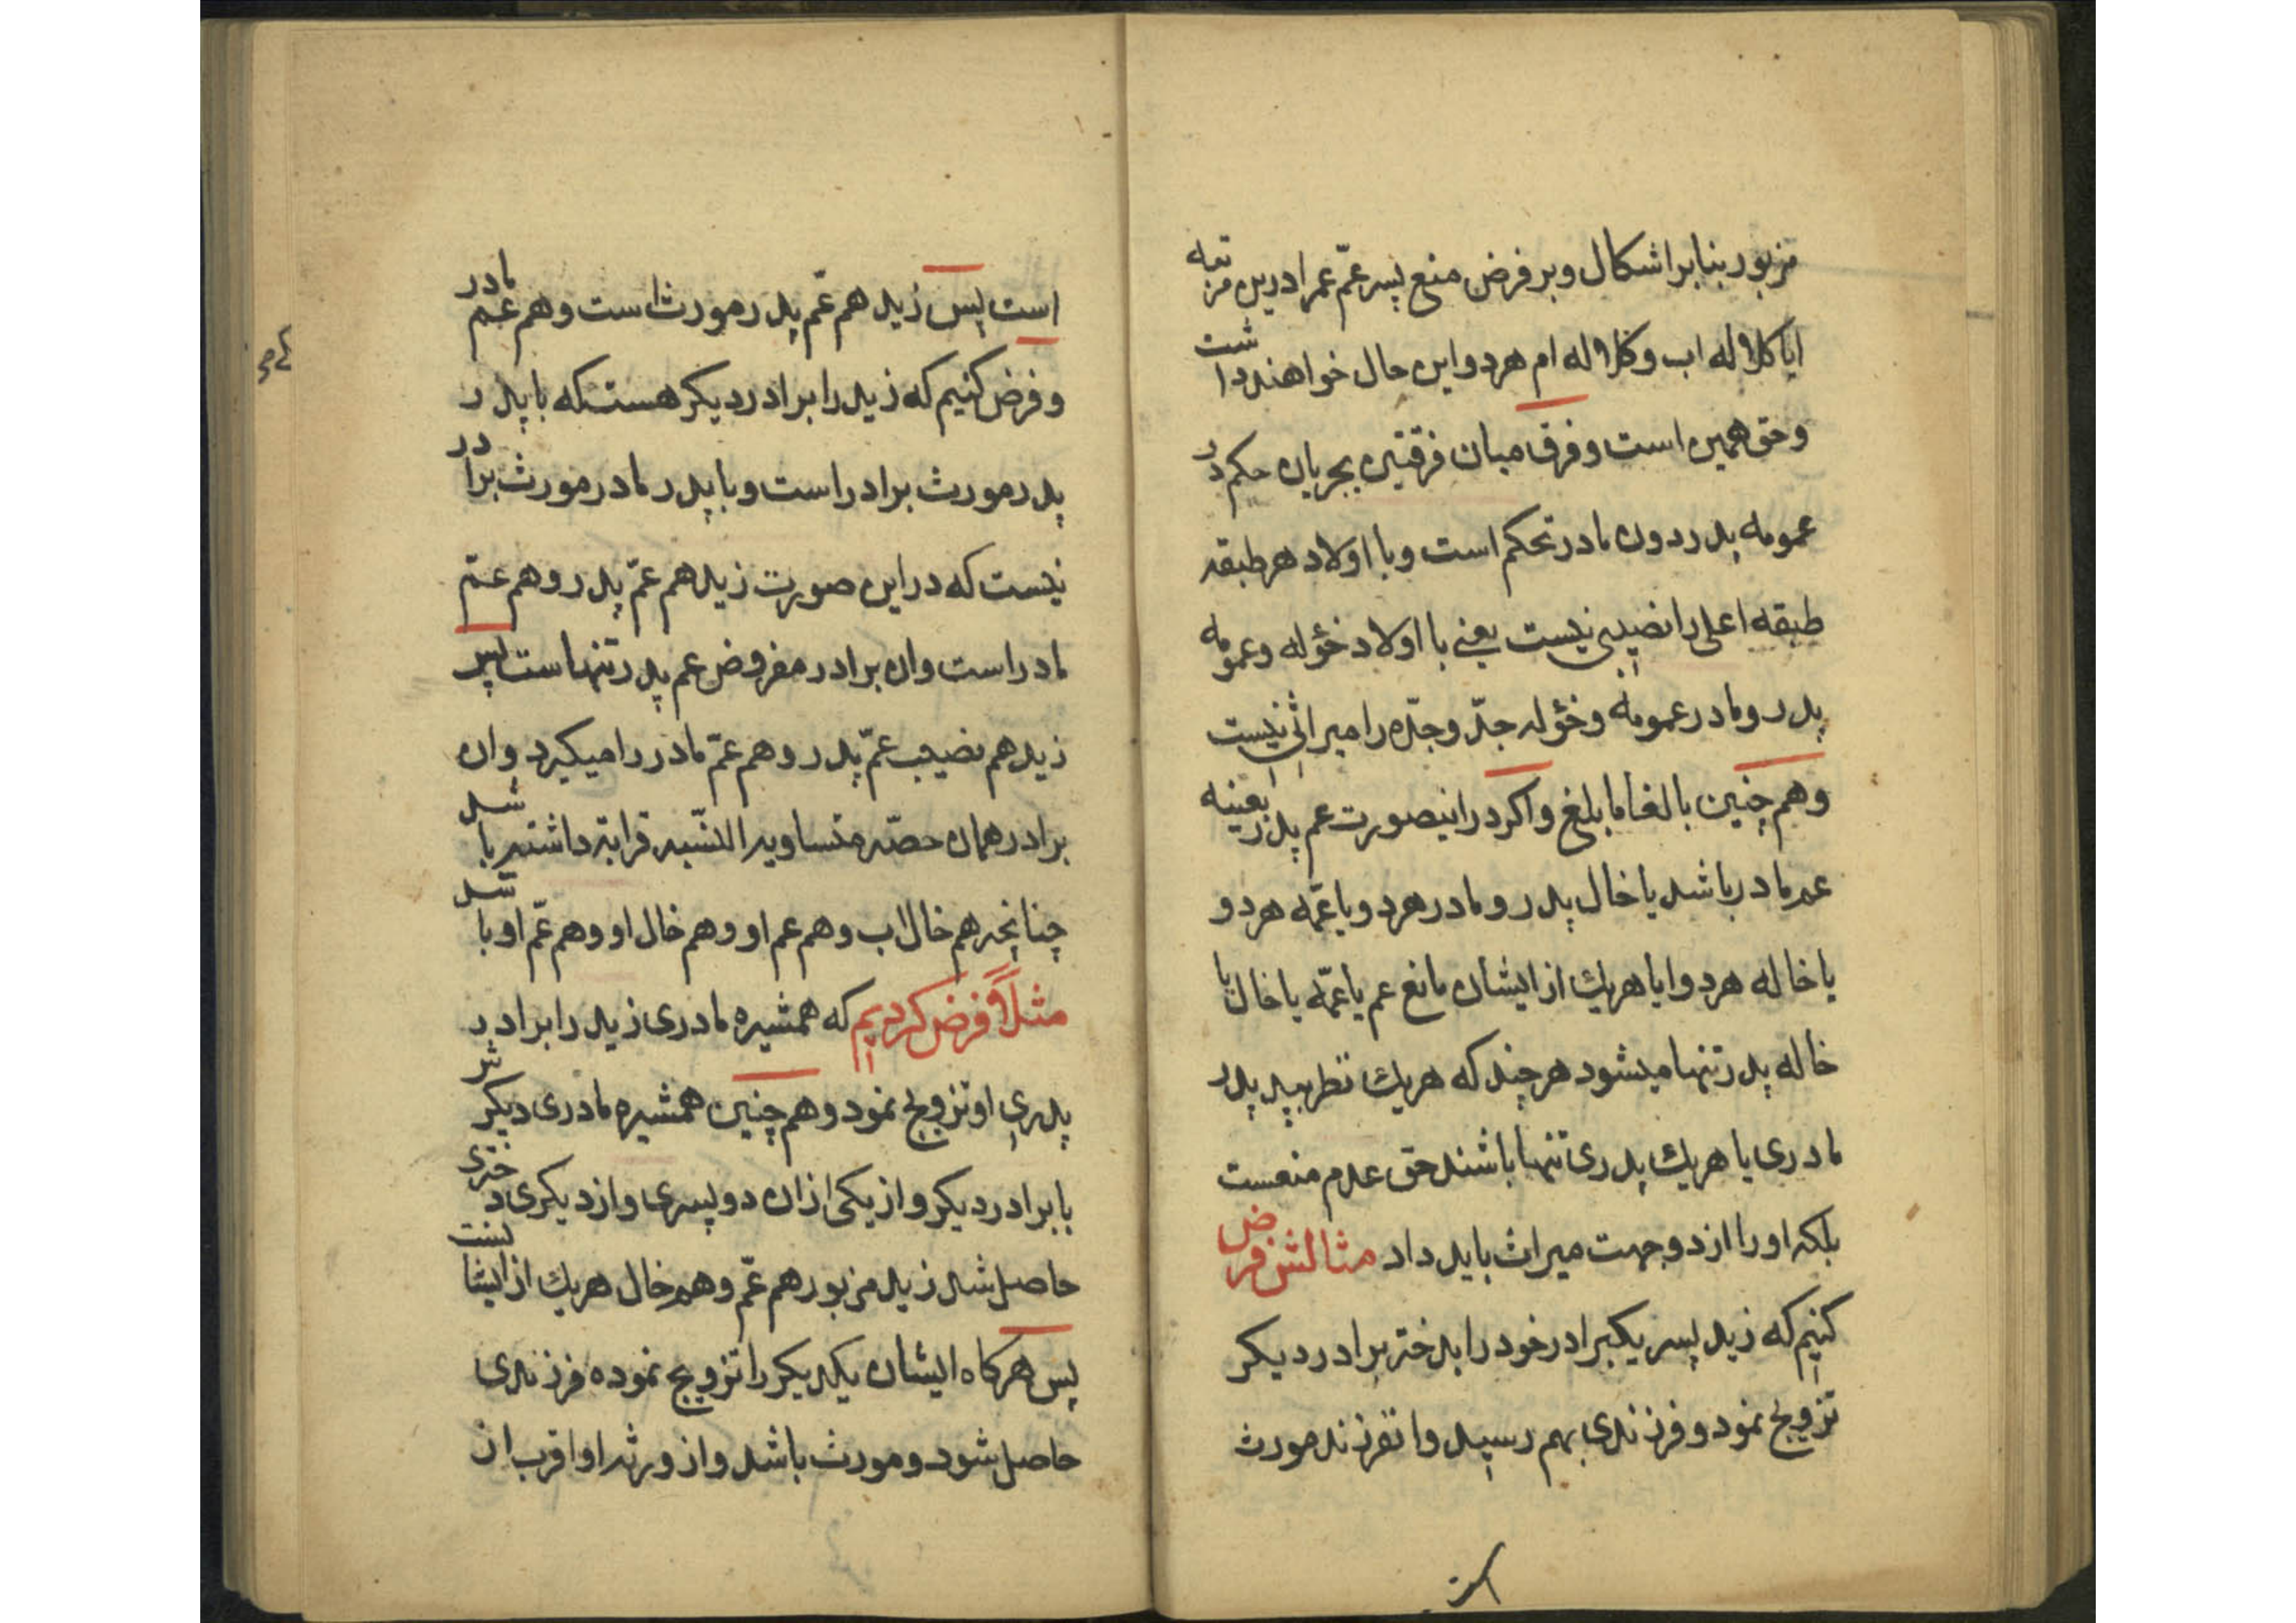 مزبور بنا بر اشکال و بر فرض منع پسر عمّ عمر ادرین مرتبه
ایا کلاله اب و کلاله ام هر دو این حال خواهند داشت
و حق همین است و فرق میان فرقتین بجریان حکم در
عمومه پدر دون مادر تحکم است و با اولاد هر طبقه
طبقه اعلی را نصیبی نیست یعنی با اولاد خؤله و عمومه
پدر و مادر عمومه و خؤله جدّ و جدّه را میراثی نیست
و هم چنین بالغا ما بلغ و اکر در اینصورت عم پدر بعینه
عم مادر باشد یا خال پدر و مادر هر دو یا عمّه هر دو
یا خاله هر دو ایا هریك از ایشان مانع عم یا عمّه یا خال یا
خاله پدر تنها میشود هر چند که هریك نظر بپدر پدر
مادری یا هریك پدری تنها باشند حق عدم منعست
بلکه او را از دو جهت میراث باید داد مثالش فرض
کنیم که زید پسر یکبرادر خود را بدختر برادر دیکر
تزویج نمود و فرزندی بهم رسید و انفرزند مورث
است
است پس زید هم عمّ پدر مورث است و هم عم مادر
و فرض کنیم که زید را برادر دیکر هست که با پدر
پدر مورث برادر است و با پدر مادر مورث برادر
نیست که در این صورت زید هم عمّ پدر و هم عمّ
مادر است و ان برادر مفروض عم پدر تنها است پس
زید هم نصیب عمّ پدر و هم عمّ مادر را میکیرد و ان
برادر همان حصّه متساویه النّسبه قرابة داشته باشد
چنانچه هم خال اب و هم عم او و هم خال او و هم عمّ او باشد
مثلاً فرض کردیم که همشیره مادری زید را برادر
پدری او تزویج نمود و هم چنین همشیره مادری دیکرش
با برادر دیکر و از یکی از ان دو پسری و از دیکری دختری
حاصل شد زید مزبور هم عمّ و هم خال هریك از ایشانست
پس هرکاه ایشان یکدیکر را تزویج نموده فرزندی
حاصل شود و مورث باشد و از ورثه او اقرب از